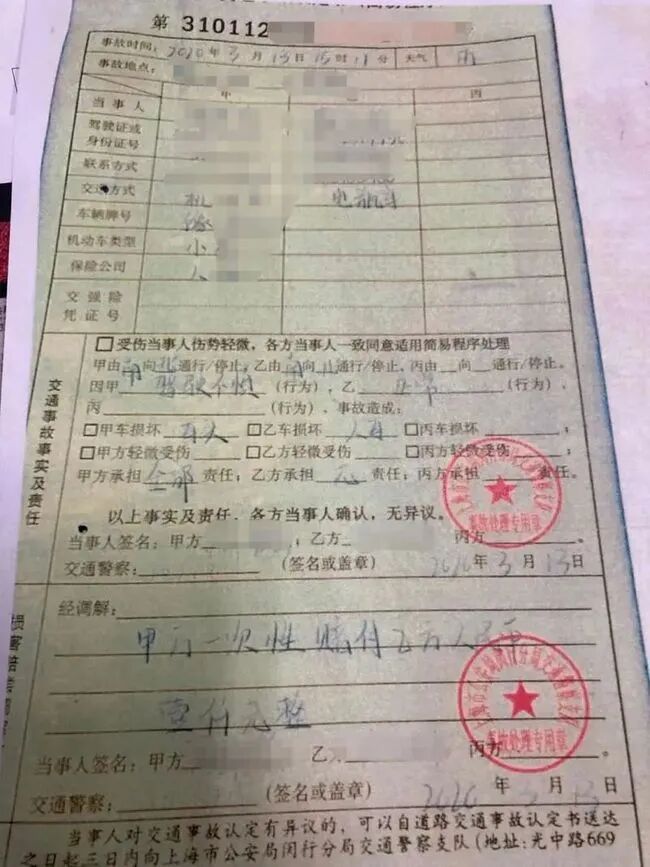 第 310112
事故时间: 2020年3月13日15时11分 天气 雨
事故地点:
甲 乙 丙
当事人
驾驶证或
身份证号
联系方式
交通方式 机 电瓶车
车辆牌号
机动车类型 小
保险公司 人
交强险
凭证号
交通事故事实及责任
□受伤当事人伤势轻微，各方当事人一致同意适用简易程序处理
甲由南向北通行/停止，乙由南向北通行/停止，丙由__向__通行/停止。
因甲 驾驶不慎 (行为)、乙 (行为)、
丙 (行为)，事故造成:
□甲车损坏 车头 □乙车损坏 □丙车损坏 ;
□甲方轻微受伤 □乙方轻微受伤 □丙方轻微受伤 ;
甲方承担 全部 责任; 乙方承担 无 责任; 丙方承担 责任。
以上事实及责任．各方当事人确认，无异议。
当事人签名: 甲方 ; 乙方 丙方 。
交通警察: (签名或盖章) 2020年3月13日
事故处理专用章
经调解:
甲方一次性赔付乙方人民币
壹仟元整
当事人签名: 甲方 乙 丙方 。
交通警察: (签名或盖章) 2020年3月13日
事故处理专用章
当事人对交通事故认定有异议的，可以自道路交通事故认定书送达
之日起三日内向上海市公安局闵行分局交通警察支队(地址:光中路669